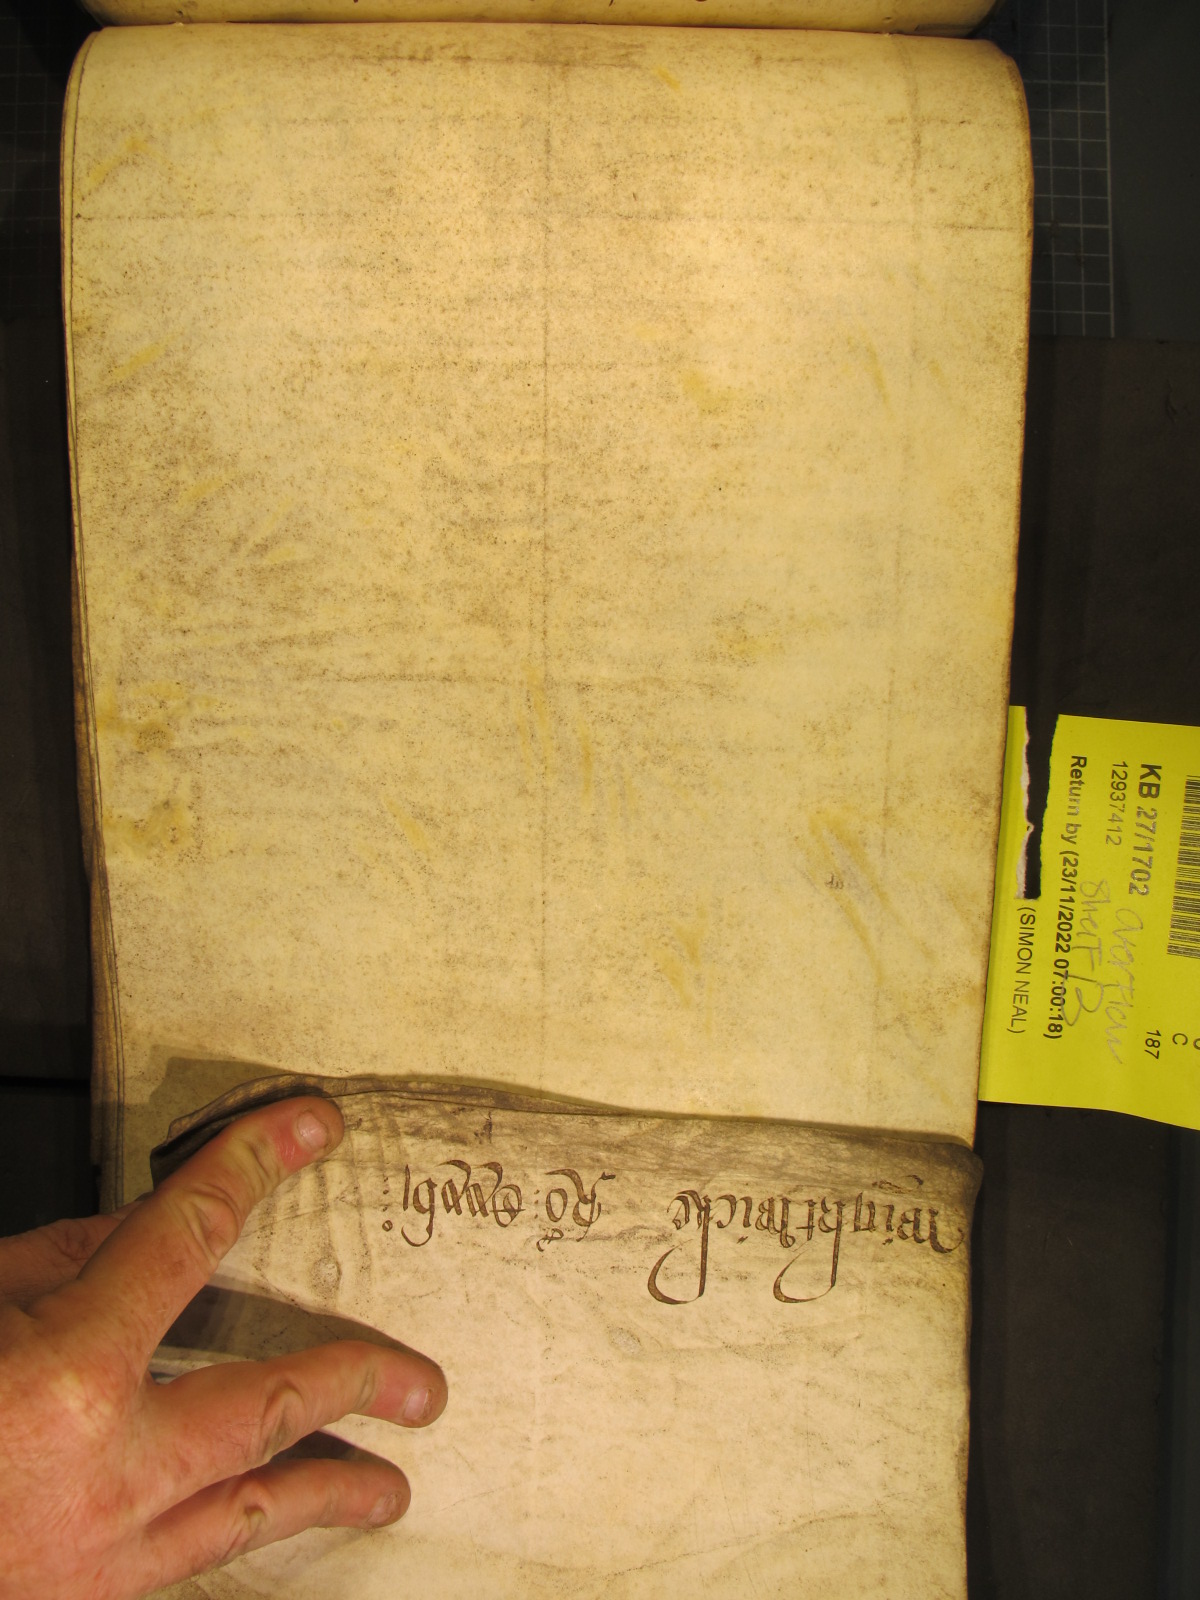 KB 27/1702
12937412
Return by (23/11/2022 07:00:18)
(SIMON NEAL)
187
C
overflow
shelf B
Wrightwicke Ro: